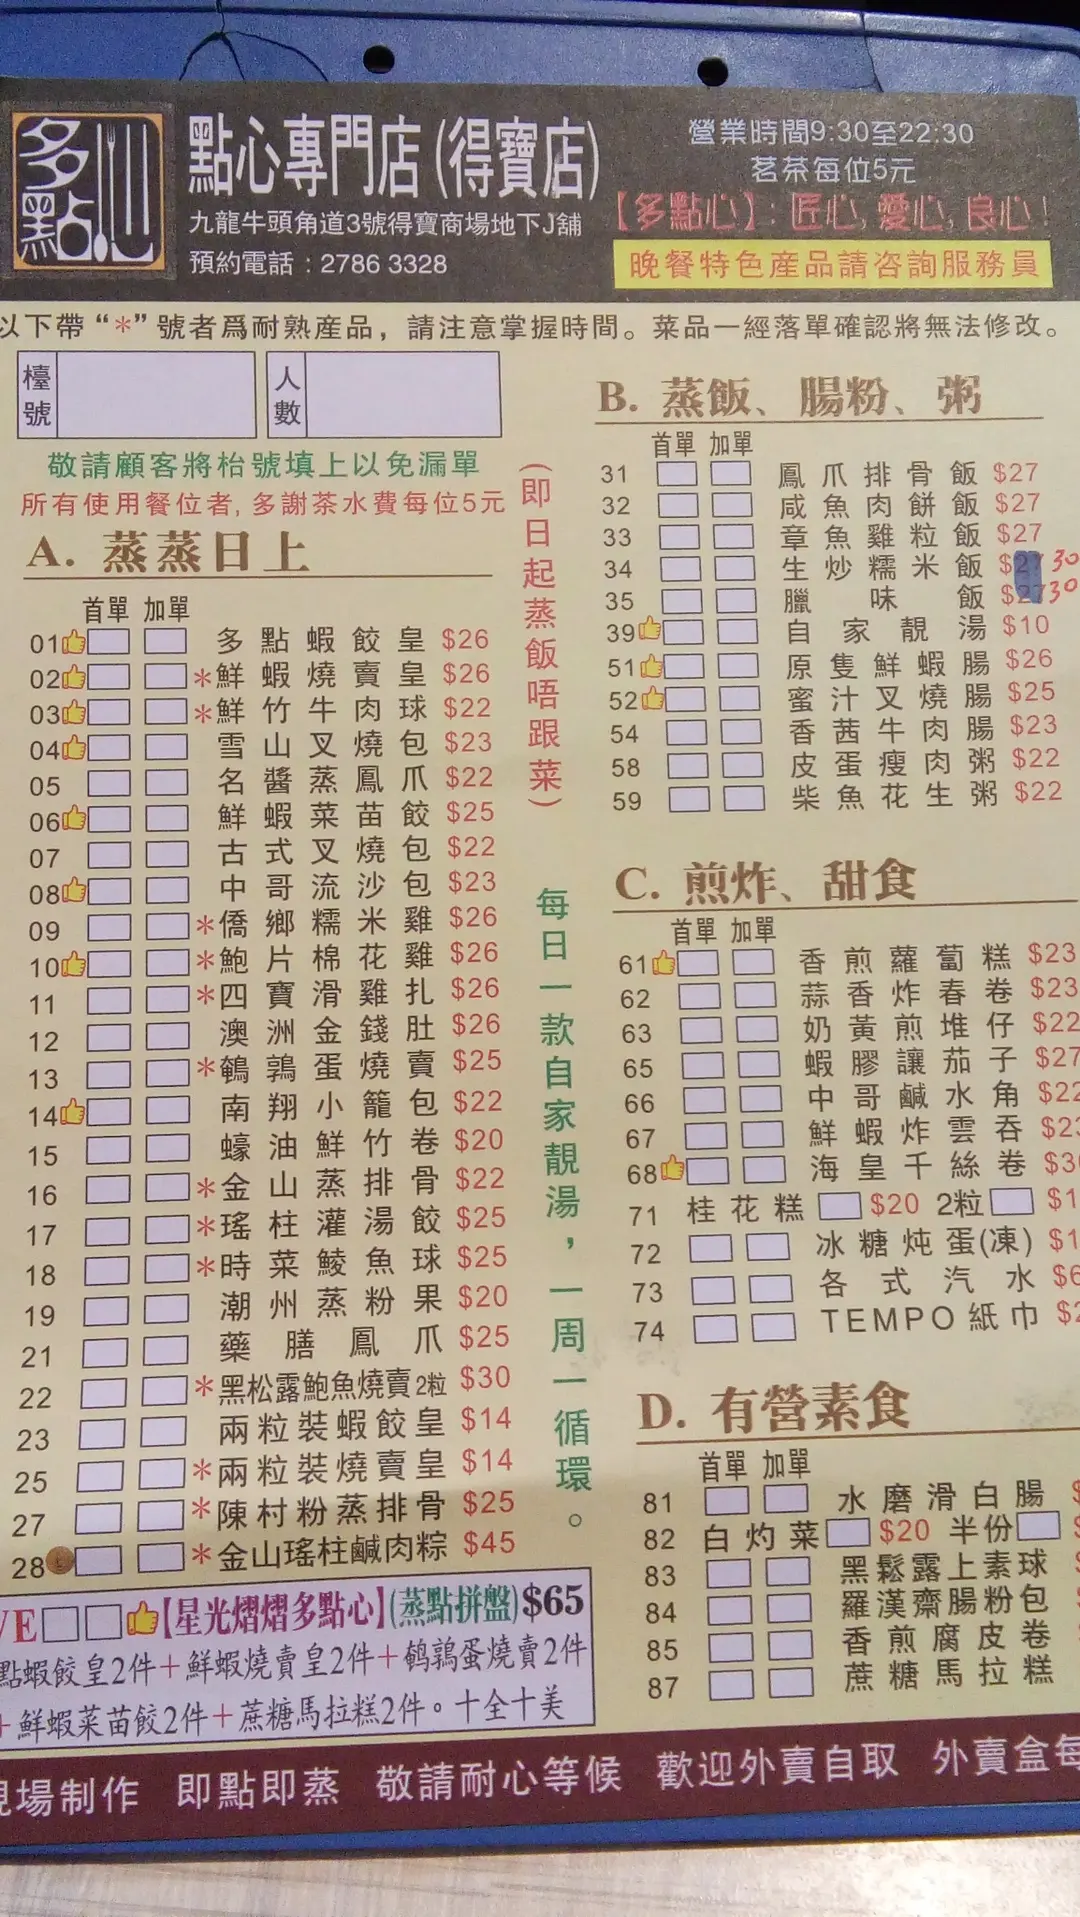 多點心
點心專門店(得寶店)
九龍牛頭角道3號得寶商場地下J舖
預約電話：2786 3328
營業時間9:30至22:30
茗茶每位5元
【多點心】：匠心，愛心，良心！
晚餐特色産品請咨詢服務員
以下帶“*”號者爲耐熟産品，請注意掌握時間。菜品一經落單確認將無法修改。
檯號
人數
敬請顧客將枱號填上以免漏單
所有使用餐位者，多謝茶水費每位5元
A. 蒸蒸日上
首單 加單
01 多點蝦餃皇 $26
02 *鮮蝦燒賣皇 $26
03 *鮮竹牛肉球 $22
04 雪山叉燒包 $23
05 名醬蒸鳳爪 $22
06 鮮蝦菜苗餃 $25
07 古式叉燒包 $22
08 中哥流沙包 $23
09 *僑鄉糯米雞 $26
10 *鮑片棉花雞 $26
11 *四寶滑雞扎 $26
12 澳洲金錢肚 $26
13 *鵪鶉蛋燒賣 $25
14 南翔小籠包 $22
15 蠔油鮮竹卷 $20
16 *金山蒸排骨 $22
17 *瑤柱灌湯餃 $25
18 *時菜鯪魚球 $25
19 潮州蒸粉果 $20
21 藥膳鳳爪 $25
22 *黑松露鮑魚燒賣2粒 $30
23 兩粒裝蝦餃皇 $14
25 *兩粒裝燒賣皇 $14
27 *陳村粉蒸排骨 $25
28 *金山瑤柱鹹肉粽 $45
(即日起蒸飯唔跟菜)
每日一款自家靚湯，一周一循環。
B. 蒸飯、腸粉、粥
首單 加單
31 鳳爪排骨飯 $27
32 咸魚肉餅飯 $27
33 章魚雞粒飯 $27
34 生炒糯米飯 $27 30
35 臘味飯 $27 30
39 自家靚湯 $10
51 原隻鮮蝦腸 $26
52 蜜汁叉燒腸 $25
54 香茜牛肉腸 $23
58 皮蛋瘦肉粥 $22
59 柴魚花生粥 $22
C. 煎炸、甜食
首單 加單
61 香煎蘿蔔糕 $23
62 蒜香炸春卷 $23
63 奶黃煎堆仔 $22
65 蝦膠讓茄子 $27
66 中哥鹹水角 $22
67 鮮蝦炸雲吞 $23
68 海皇千絲卷 $3
71 桂花糕 $20 2粒 $1
72 冰糖炖蛋(凍) $1
73 各式汽水 $6
74 TEMPO紙巾 $2
D. 有營素食
首單 加單
81 水磨滑白腸
82 白灼菜 $20 半份 $
83 黑鬆露上素球
84 羅漢齋腸粉包
85 香煎腐皮卷
87 蔗糖馬拉糕
VE【星光熠熠多點心】(蒸點拼盤)$65
點蝦餃皇2件+鮮蝦燒賣皇2件+鹌鶉蛋燒賣2件
+鮮蝦菜苗餃2件+蔗糖馬拉糕2件。十全十美
現場制作 即點即蒸 敬請耐心等候 歡迎外賣自取 外賣盒每